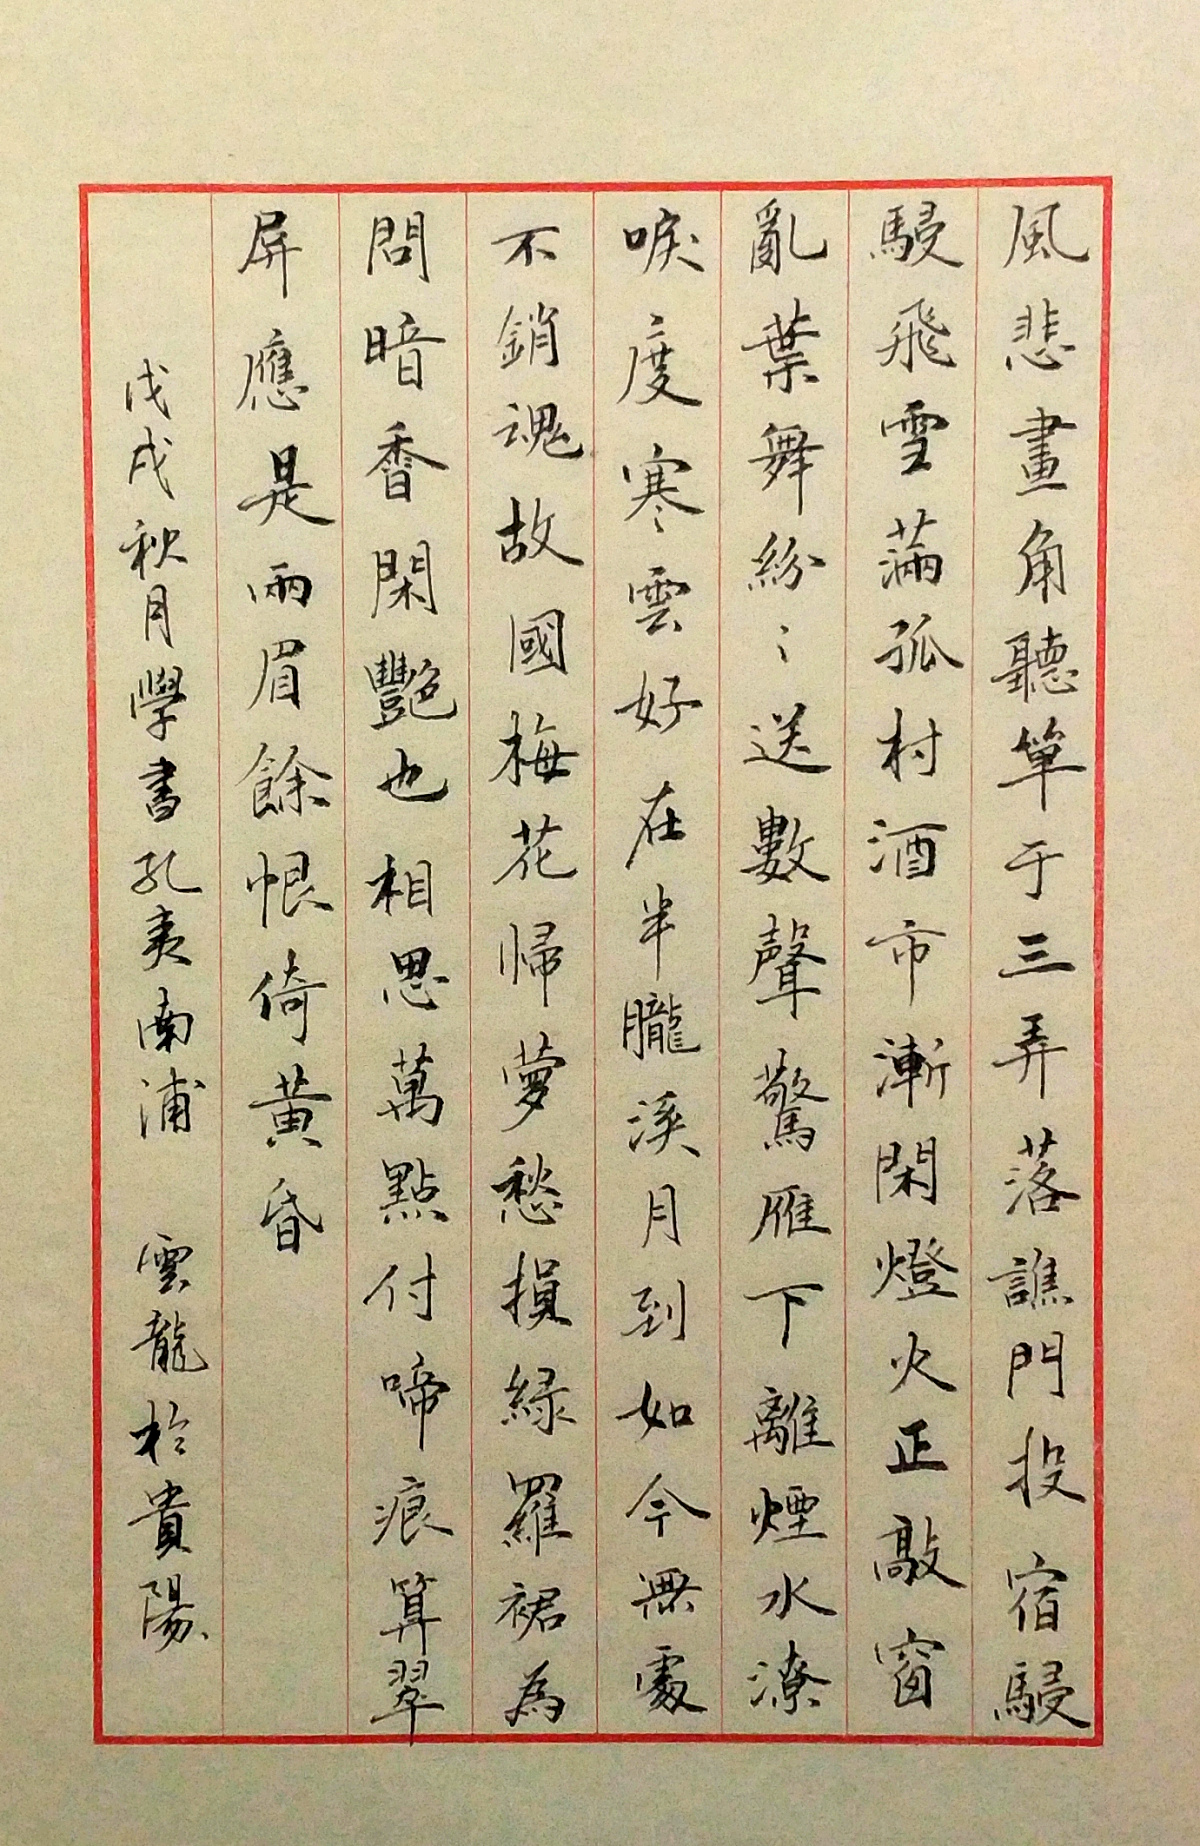 風悲畫角聽單于三弄落譙門投宿駸
駸飛雪滿孤村酒市漸閑燈火正敲窗
亂葉舞紛〻送數聲驚雁下離煙水潦
唳度寒雲好在半朧溪月到如今無處
不銷魂故國梅花歸夢愁損綠羅裙為
問暗香閑艷也相思萬點付啼痕算翠
屏應是兩眉餘恨倚黃昏
戊戌秋月學書孔夷南浦 雲龍於貴陽